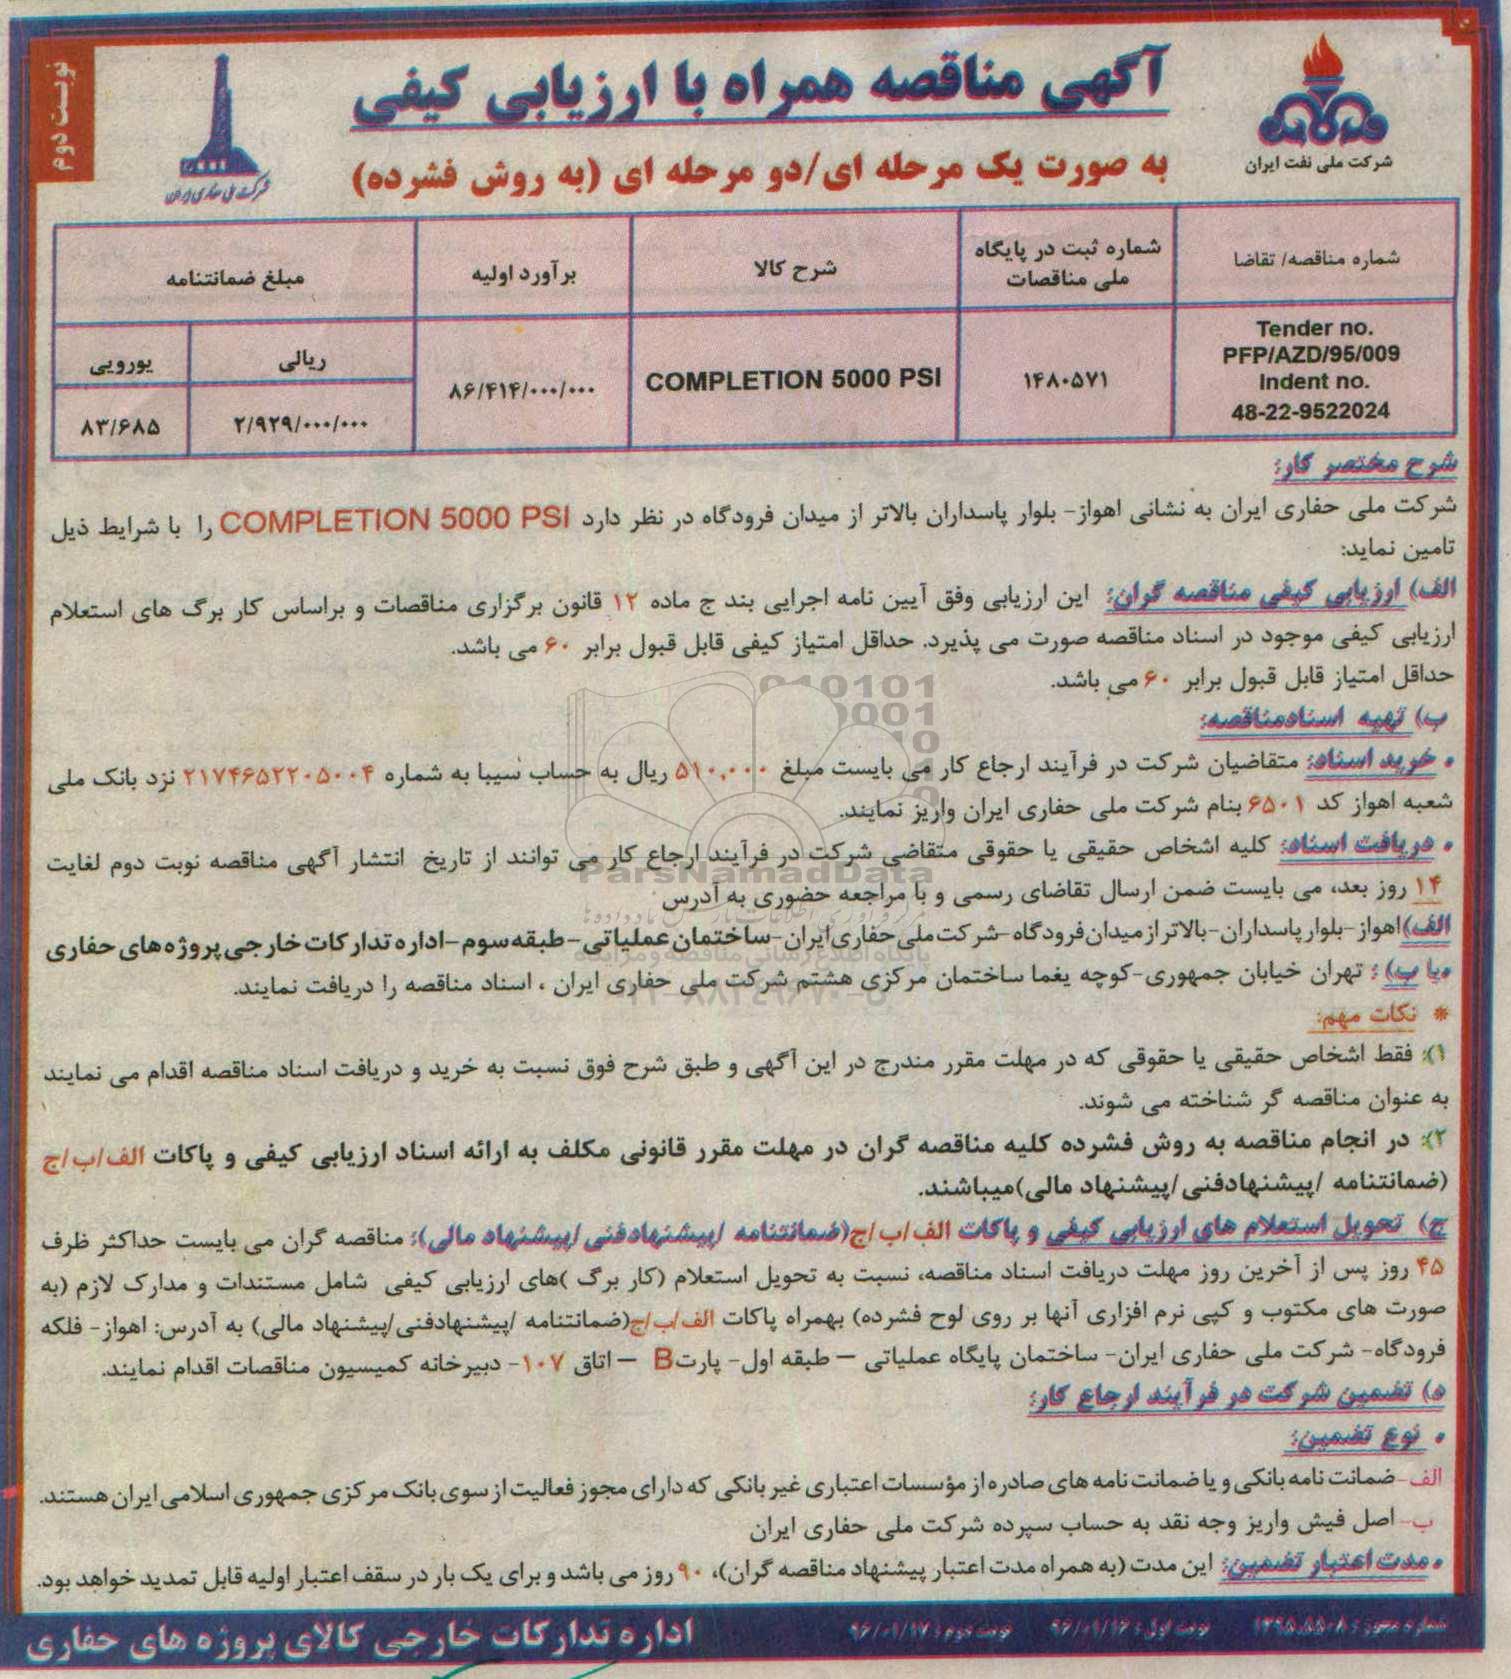 نوبت دوم
آگهی مناقصه همراه با ارزیابی کیفی
به صورت یک مرحله ای/دو مرحله ای (به روش فشرده)
شرکت ملی نفت ایران
شرکت ملی حفاری ایران
شماره مناقصه/ تقاضا
شماره ثبت در پایگاه
ملی مناقصات
شرح کالا
برآورد اولیه
مبلغ ضمانتنامه
ریالی
یورویی
Tender no.
PFP/AZD/95/009
Indent no.
48-22-9522024
۱۴۸۰۵۷۱
COMPLETION 5000 PSI
۸۶/۴۱۴/۰۰۰/۰۰۰
۲/۹۲۹/۰۰۰/۰۰۰
۸۳/۶۸۵
شرح مختصر کار:
شرکت ملی حفاری ایران به نشانی اهواز- بلوار پاسداران بالاتر از میدان فرودگاه در نظر دارد COMPLETION 5000 PSI را با شرایط ذیل
تامین نماید:
الف) ارزیابی کیفی مناقصه گران: این ارزیابی وفق آیین نامه اجرایی بند ج ماده ۱۲ قانون برگزاری مناقصات و براساس کار برگ های استعلام
ارزیابی کیفی موجود در اسناد مناقصه صورت می پذیرد. حداقل امتیاز کیفی قابل قبول برابر ۶۰ می باشد.
حداقل امتیاز قابل قبول برابر ۶۰ می باشد.
ب) تهیه اسنادمناقصه:
• خرید اسناد: متقاضیان شرکت در فرآیند ارجاع کار می بایست مبلغ ۵۱۰,۰۰۰ ریال به حساب سیبا به شماره ۲۱۷۴۶۵۲۲۰۵۰۰۴ نزد بانک ملی
شعبه اهواز کد ۶۵۰۱ بنام شرکت ملی حفاری ایران واریز نمایند.
• دریافت اسناد: کلیه اشخاص حقیقی یا حقوقی متقاضی شرکت در فرآیند ارجاع کار می توانند از تاریخ انتشار آگهی مناقصه نوبت دوم لغایت
۱۴ روز بعد، می بایست ضمن ارسال تقاضای رسمی و با مراجعه حضوری به آدرس
الف) اهواز-بلوارپاسداران-بالاتر از میدان فرودگاه-شرکت ملی حفاری ایران-ساختمان عملیاتی-طبقه سوم-اداره تدارکات خارجی پروژه های حفاری
•یا ب) : تهران خیابان جمهوری-کوچه یغما ساختمان مرکزی هشتم شرکت ملی حفاری ایران ، اسناد مناقصه را دریافت نمایند.
* نکات مهم:
۱): فقط اشخاص حقیقی یا حقوقی که در مهلت مقرر مندرج در این آگهی و طبق شرح فوق نسبت به خرید و دریافت اسناد مناقصه اقدام می نمایند
به عنوان مناقصه گر شناخته می شوند.
۲): در انجام مناقصه به روش فشرده کلیه مناقصه گران در مهلت مقرر قانونی مکلف به ارائه اسناد ارزیابی کیفی و پاکات الف/ب/ج
(ضمانتنامه /پیشنهادفنی/پیشنهاد مالی)میباشند.
ج) تحویل استعلام های ارزیابی کیفی و پاکات الف/ب/ج(ضمانتنامه /پیشنهادفنی/پیشنهاد مالی): مناقصه گران می بایست حداکثر ظرف
۴۵ روز پس از آخرین روز مهلت دریافت اسناد مناقصه، نسبت به تحویل استعلام (کار برگ )های ارزیابی کیفی شامل مستندات و مدارک لازم (به
صورت های مکتوب و کپی نرم افزاری آنها بر روی لوح فشرده) بهمراه پاکات الف/ب/ج(ضمانتنامه /پیشنهادفنی/پیشنهاد مالی) به آدرس: اهواز- فلکه
فرودگاه- شرکت ملی حفاری ایران- ساختمان پایگاه عملیاتی – طبقه اول- پارت B – اتاق ۱۰۷- دبیرخانه کمیسیون مناقصات اقدام نمایند.
د) تضمین شرکت در فرآیند ارجاع کار:
• نوع تضمین:
الف-ضمانت نامه بانکی و یا ضمانت نامه های صادره از مؤسسات اعتباری غیر بانکی که دارای مجوز فعالیت از سوی بانک مرکزی جمهوری اسلامی ایران هستند.
ب- اصل فیش واریز وجه نقد به حساب سپرده شرکت ملی حفاری ایران
• مدت اعتبار تضمین: این مدت (به همراه مدت اعتبار پیشنهاد مناقصه گران)، ۹۰ روز می باشد و برای یک بار در سقف اعتبار اولیه قابل تمدید خواهد بود.
شماره مجوز : ۱۳۹۵.۵۵۰۸ نوبت اول : ۹۶/۰۱/۱۶ نوبت دوم : ۹۶/۰۱/۱۷
اداره تدارکات خارجی کالای پروژه های حفاری
ParsNamadData
پایگاه اطلاع رسانی مناقصه و مزایده